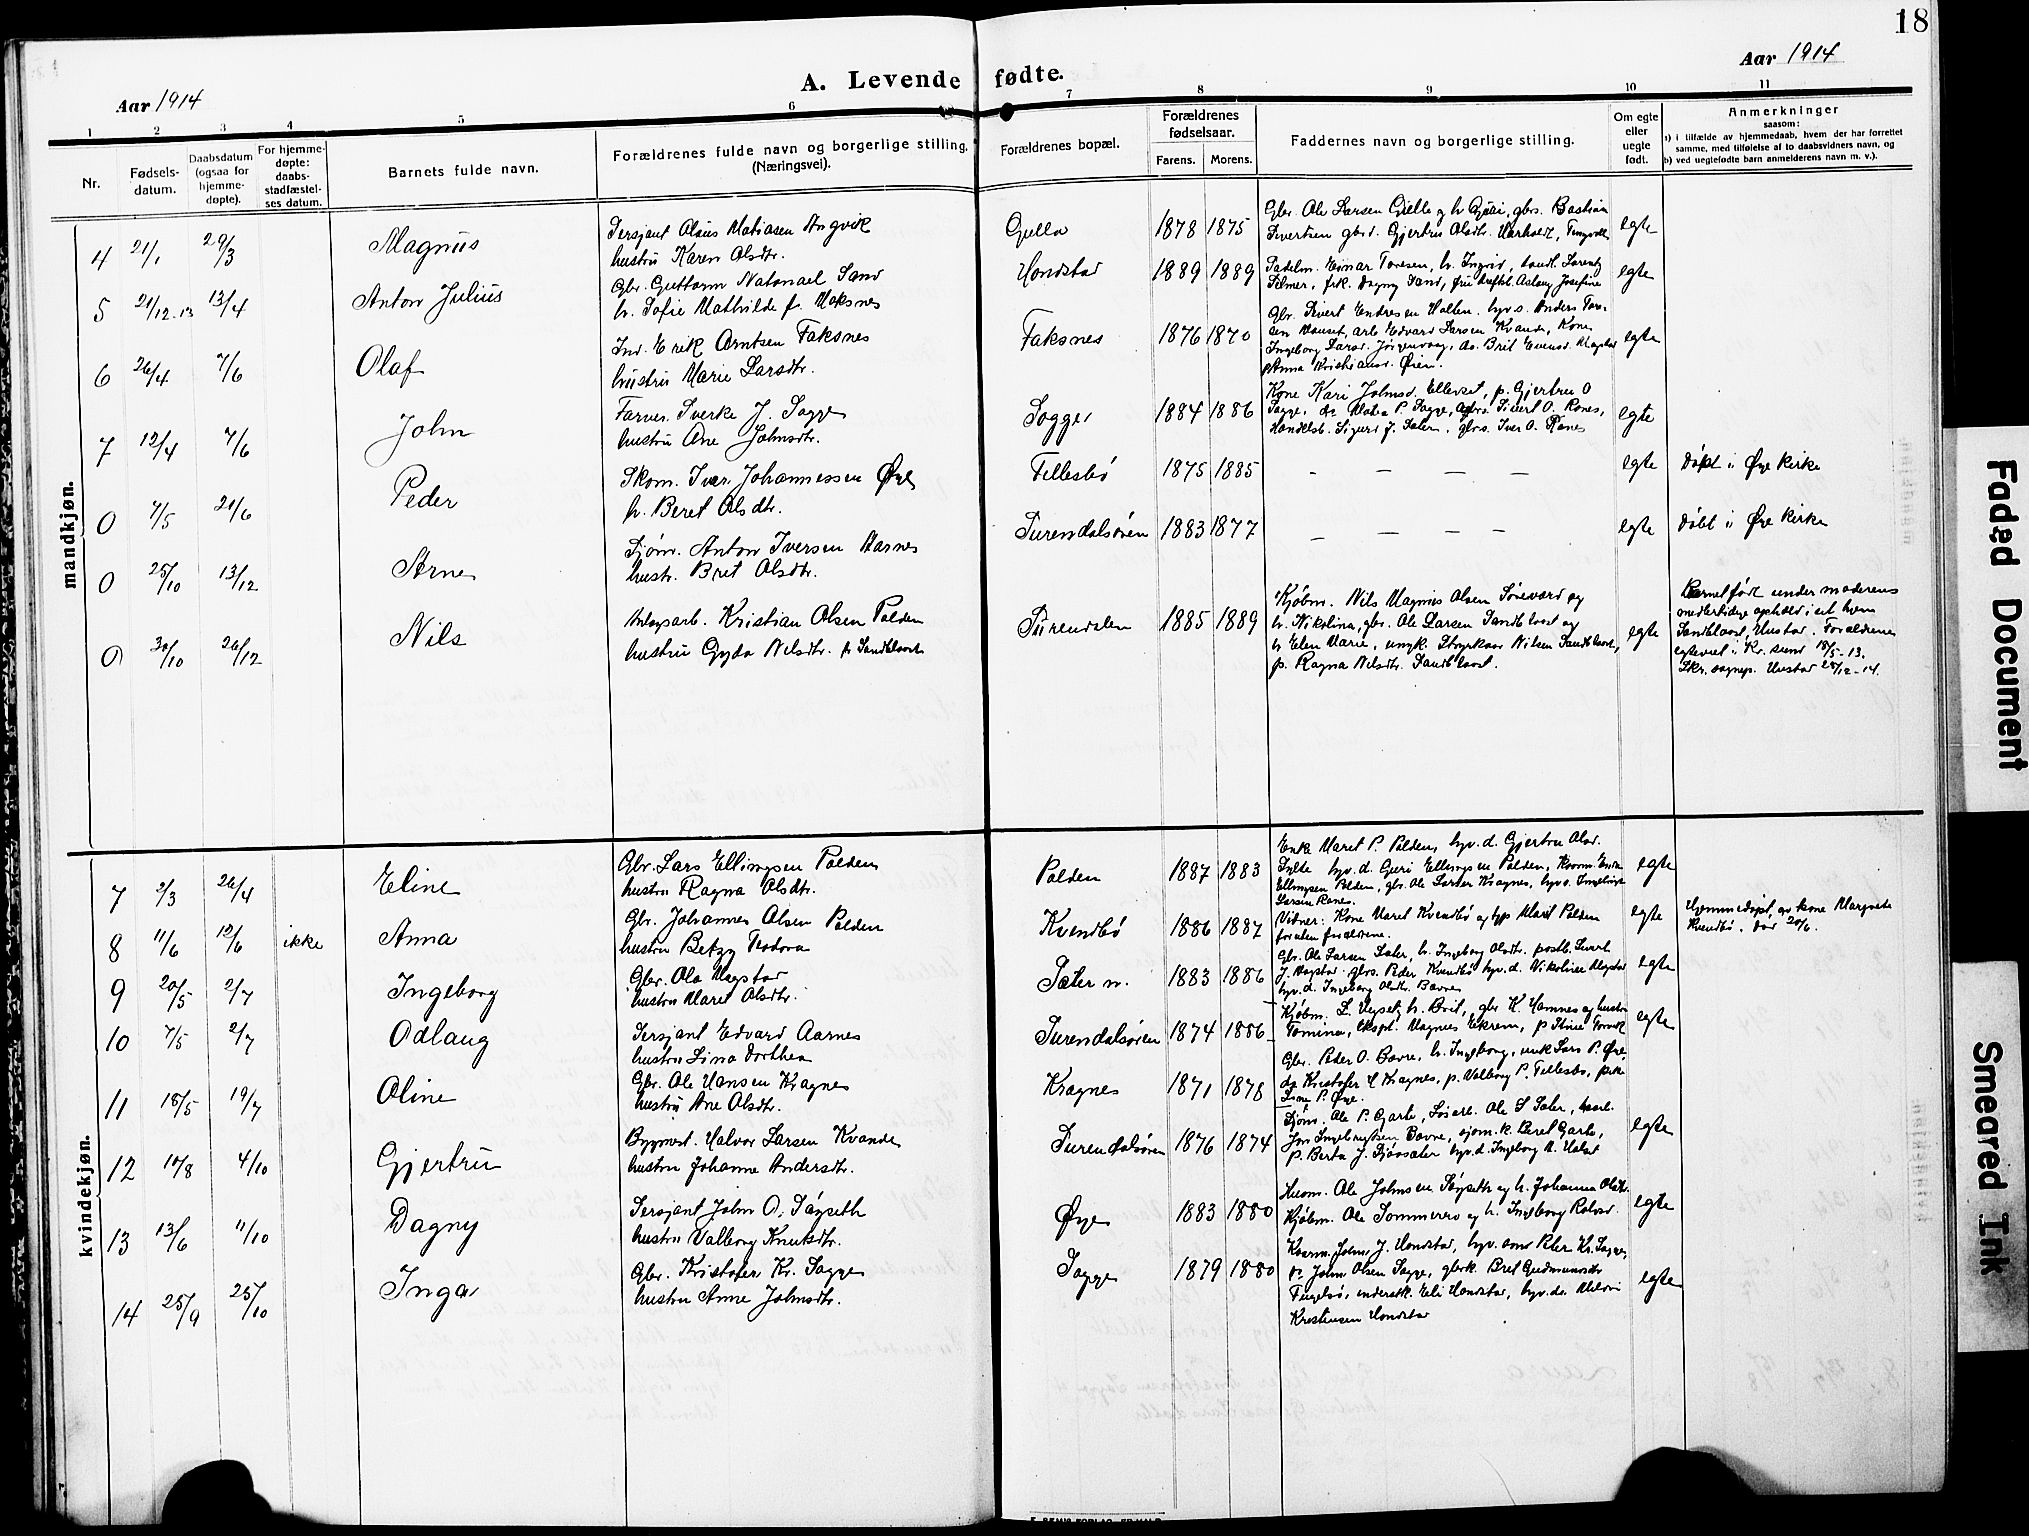 18
Aar 1914
A. Levende fødte.
Aar 1914
1 2 3 4 5 6 7 8 9 10 11
Nr.
Fødsels-
datum.
Daabsdatum
(ogsaa for
hjemme-
døpte).
For hjemme-
døpte:
daabs-
stadfæstel-
ses datum.
Barnets fulde navn.
Forældrenes fulde navn og borgerlige stilling.
(Næringsvei).
Forældrenes bopæl.
Forældrenes
fødselsaar.
Farens. Morens.
Faddernes navn og borgerlige stilling.
Om egte
eller
uegte
født.
Anmerkninger
saasom:
a) i tilfælde av hjemmedaab, hvem der har forrettet
samme, med tilføielse af to daabsvidners navn, og
b) ved uegtefødte barn anmelderens navn m. v.).
mandkjøn.
4 21/1 29/3 Magnus
Sersjant Olaus Matiasen Angvik
hustru Karen Olsdtr.
Gjella 1878 1875
Gbr. Ole Larsen Gjelle og h. Guri, gbrs. Bastian
Sivertsen gbrd. Gjertru Olsdtr.
egte
5 21/12-13 13/4 Anton Julius
Gbr. Guttorm Natanael Sand
h. Sofie Mathilde f. Moksnes
Hondstad 1889 1889
Einar Toresen, h. Ingrid, Lorentz
frk. Dagny Sand, Aslaug Josefine
egte
6 26/4 7/6 Olaf
Ind. Erik Arntsen Faksnes
hustru Marie Larsdtr.
Faksnes 1876 1870
Gbr. Sivert Endresen Hallen, Anders Tore-
sen arb. Edvard Larsen Kvande, Kone
Ingeborg Larsd. do. Brit Evensd.
p. Anna Kristiansd. Øien.
egte
7 12/4 7/6 John
Farver. Sverke J. Sogge
hustru Ane Johnsdtr.
Sogge 1884 1886
Kone Kari Johnsd. Ellevset, p. Gjertru O
Sogge, do. P. Sogge, gbrs. Sivert O. Rones,
Handelsb. Sigurd J. Sæter, gbrs. Iver O. Rones
egte
0 7/5 21/6 Peder
Skom. Iver Johannessen Øye
h. Beret Olsdtr.
Tellesbø 1875 1885 – – – – egte
Døpt i Øye kirke
0 25/10 13/12 Arne
Sjøm. Anton Iversen Aarnes
hustr. Bret Olsdtr.
Surendalsøren 1883 1877 – – – – egte
Døbt i Øye kirke
0 30/10 26/12 Nils
Anlægsarb. Kristian Olsen Polden
hustru Gyda Nilsdtr. f. Sandblaast
Surendalen 1885 1889
Kjøbm. Nils Magnus Olsen og
h. Nikolina, gbr. Ole Larsen Sandblaast og
h. Elen Marie, ungk. Nilsen Sandblaast,
p. Ragna Nilsdtr. Sandblaast.
egte
Barnet født under moderens
midlertidige ophold i sit hjem
Sandblaast, Hustad. Forældrene
egteviet i Kr.sund 18/5-13.
Skr. sognep. Hustad 28/12-14.
kvindekjøn.
7 2/3 26/4 Eline
Gbr. Lars Ellingsen Polden
hustru Ragna Olsdtr.
Polden 1887 1883
Enke Maret P. Polden, hyv.d. Gjertru Olsd.
hyv.d. Guri Ellingsen Polden,
Ellingsen Polden, gbr. Ole Larsen Kragnes,
Larsen Rones.
egte
8 11/6 12/6 ikke Anna
Gbr. Johannes Olsen Polden
hustru Betzy Teodora
Kvendbø 1886 1887
Vitner: Kone Maret Kvendbø og Marit Polden
foruten forældrene.
egte
Hjemmedøpt av kone Margrete
Kvendbø. Død 20/6.
9 20/5 2/7 Ingeborg
Gbr. Ola Megstad
hustru Maret Olsdtr.
Sæter n. 1883 1886
Gbr. Ole Larsen Sæter, h. Ingeborg Olsdtr. postb. Sivert
J. Megstad, gbrs. Peder Kvendbø hyv.d. Nikoline Megstad
hyv.d. Ingeborg Olsdtr. Bævre
egte
10 7/5 2/7 Odlaug
Sersjant Edvard Aarnes
hustru Lina Dorthea
Surendalsøren 1874 1886
Kjøbm. L. h. Brit, gbr K. Hamnes og hustru
Tomina, Ekspt. Magnus Ekrem, p. Stine
egte
11 18/5 19/7 Oline
Gbr. Ole Hansen Kragnes
hustru Ane Olsdtr.
Kragnes 1871 1878
Gbr. Peder O. Bævre, h. Ingeborg, Lars P. Øye,
do. Kristofer Kragnes, p. Valborg P. Tellesbø,
Line P. Øye.
12 10/8 4/10 Gjertru
Bygmest. Halvor Larsen Kvande
hustru Johanne Andersdtr.
Surendalsøren 1876 1874
Sjøm. Ole P. Garte, Ole S Sæter,
Jon Ingebrigtsen Bævre, sjøm.k. Beret Garte,
p. Berta J. hyv.d. Ingeborg
egte
13 13/6 11/10 Dagny
Sersjant John O. Søyseth
hustru Valborg Knutsdtr.
Øye 1883 1880
Ole Johnsen Søyseth og h. Johanna Olsdtr.
Kjøbm. Ole Sommerro og h. Ingeborg
egte
14 25/9 25/10 Inga
Gbr. Kristofer Kr. Sogge
hustru Anne Johnsdtr.
Sogge 1879 1880
John J. Hondstad, hyv. Peter Kr. Sogge,
do. John Olsen Sogge, Bret Gudmundsdtr
Eli Hondstad, hyv.d.
Kristensen Hondstad
egte
Faded Document
Smeared Ink